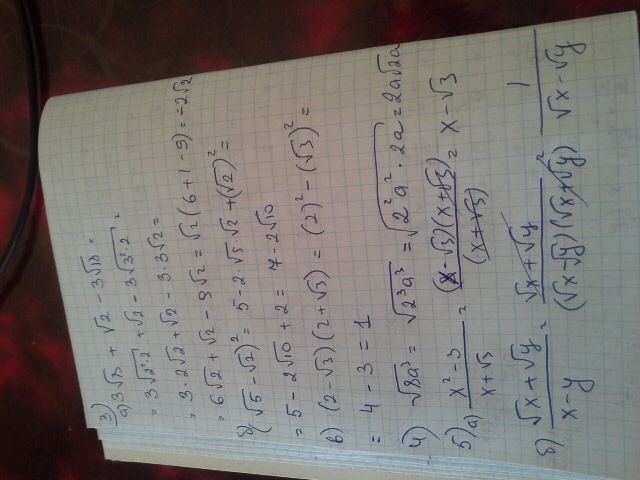 3)
а) 3√8 + √2 - 3√18 =
= 3√2²·2 + √2 - 3√3²·2 =
= 3·2√2 + √2 - 3·3√2 =
= 6√2 + √2 - 9√2 = √2 (6+1-9) = -2√2
б) (√5 - √2)² = 5 - 2·√5·√2 + (√2)² =
= 5 - 2√10 + 2 = 7 - 2√10
в) (2-√3)(2+√3) = (2)² - (√3)² =
= 4 - 3 = 1
4) √8a³ = √2³a³ = √2²a²·2a = 2a√2a
5) а) x² - 3 / x + √3 = (x-√3)(x+√3) / (x+√3) = x - √3
б) √x + √y / x - y = √x + √y / (√x-√y)(√x+√y) = 1 / √x - √y